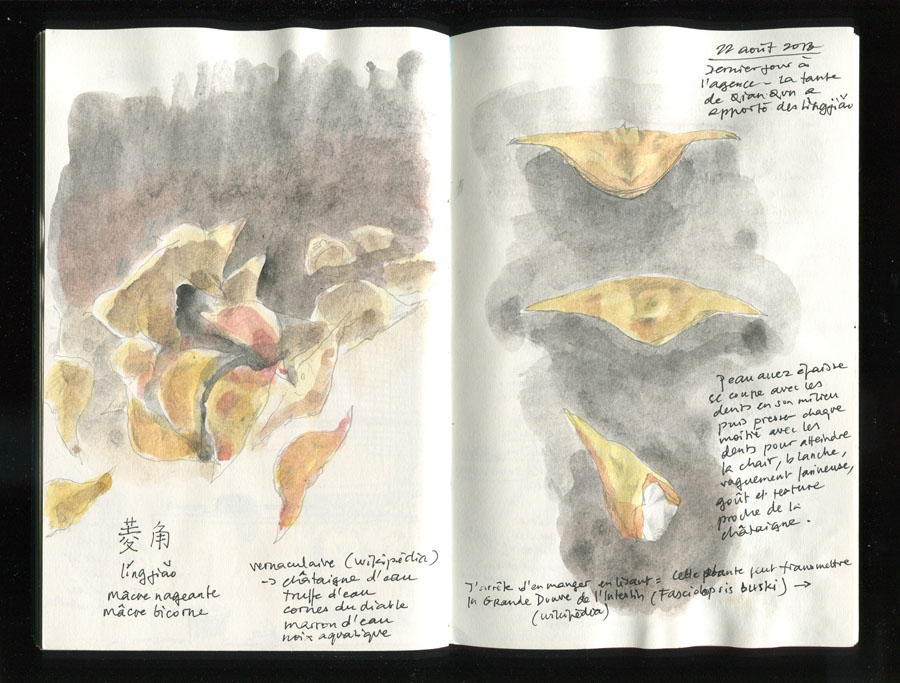 菱角
língjiǎo
mâcre nageante
mâcre bicorne
vernaculaire (wikipédia)
-> châtaigne d'eau
truffe d'eau
cornes du diable
marron d'eau
noix aquatique
22 août 2013
Dernier jour à
l'agence - La tante
de Qian Qun a
apporté des língjiǎo
Peau assez épaisse
se coupe avec les
dents en son milieu
puis presser chaque
moitié avec les
dents pour atteindre
la chair, blanche,
vaguement farineuse,
goût et texture
proche de la
châtaigne.
J'arrête d'en manger en lisant = cette plante peut transmettre
la Grande Douve de l'Intestin (Fasciolopsis buski) ->
(wikipédia)